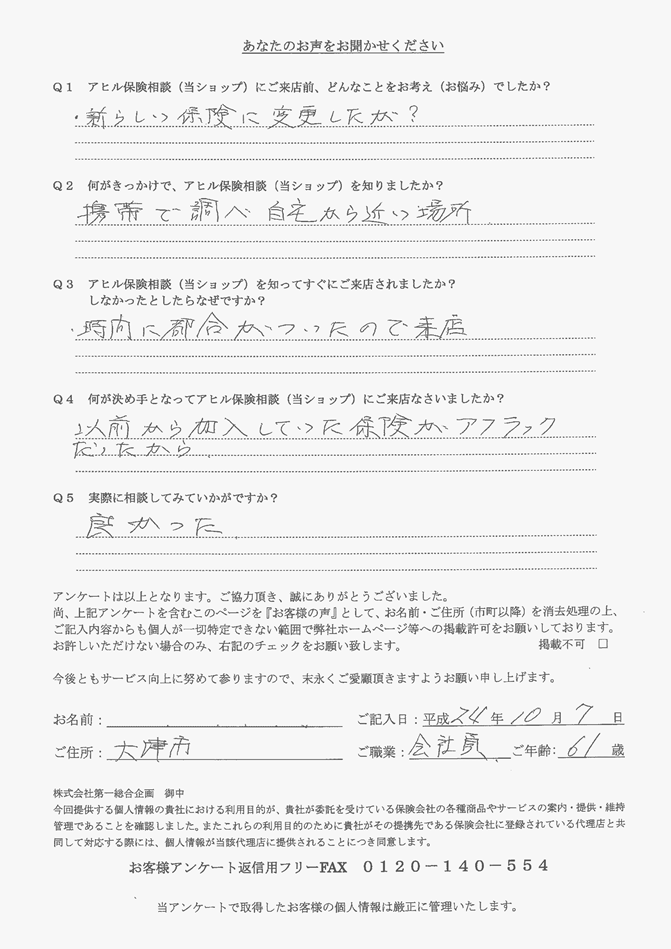 あなたのお声をお聞かせください
Q1 アヒル保険相談（当ショップ）にご来店前、どんなことをお考え（お悩み）でしたか？
・新らしい保険に変更したが？
Q2 何がきっかけで、アヒル保険相談（当ショップ）を知りましたか？
携帯で調べ自宅から近い場所
Q3 アヒル保険相談（当ショップ）を知ってすぐにご来店されましたか？
しなかったとしたらなぜですか？
・時間に都合がついたので来店
Q4 何が決め手となってアヒル保険相談（当ショップ）にご来店なさいましたか？
以前から加入していった保険がアフラック
だったから
Q5 実際に相談してみていかがですか？
良かった
アンケートは以上となります。ご協力頂き、誠にありがとうございました。
尚、上記アンケートを含むこのページを『お客様の声』として、お名前・ご住所（市町以降）を消去処理の上、
ご記入内容からも個人が一切特定できない範囲で弊社ホームページ等への掲載許可をお願いしております。
お許しいただけない場合のみ、右記のチェックをお願い致します。 掲載不可 □
今後ともサービス向上に努めて参りますので、末永くご愛顧頂きますようお願い申し上げます。
お名前： ご記入日：平成24年10月7日
ご住所：大津市 ご職業：会社員 ご年齢：61歳
株式会社第一総合企画 御中
今回提供する個人情報の貴社における利用目的が、貴社が委託を受けている保険会社の各種商品やサービスの案内・提供・維持
管理であることを確認しました。またこれらの利用目的のために貴社がその提携先である保険会社に登録されている代理店と共
同して対応する際には、個人情報が当該代理店に提供されることにつき同意します。
お客様アンケート返信用フリーFAX 0120－140－554
当アンケートで取得したお客様の個人情報は厳正に管理いたします。